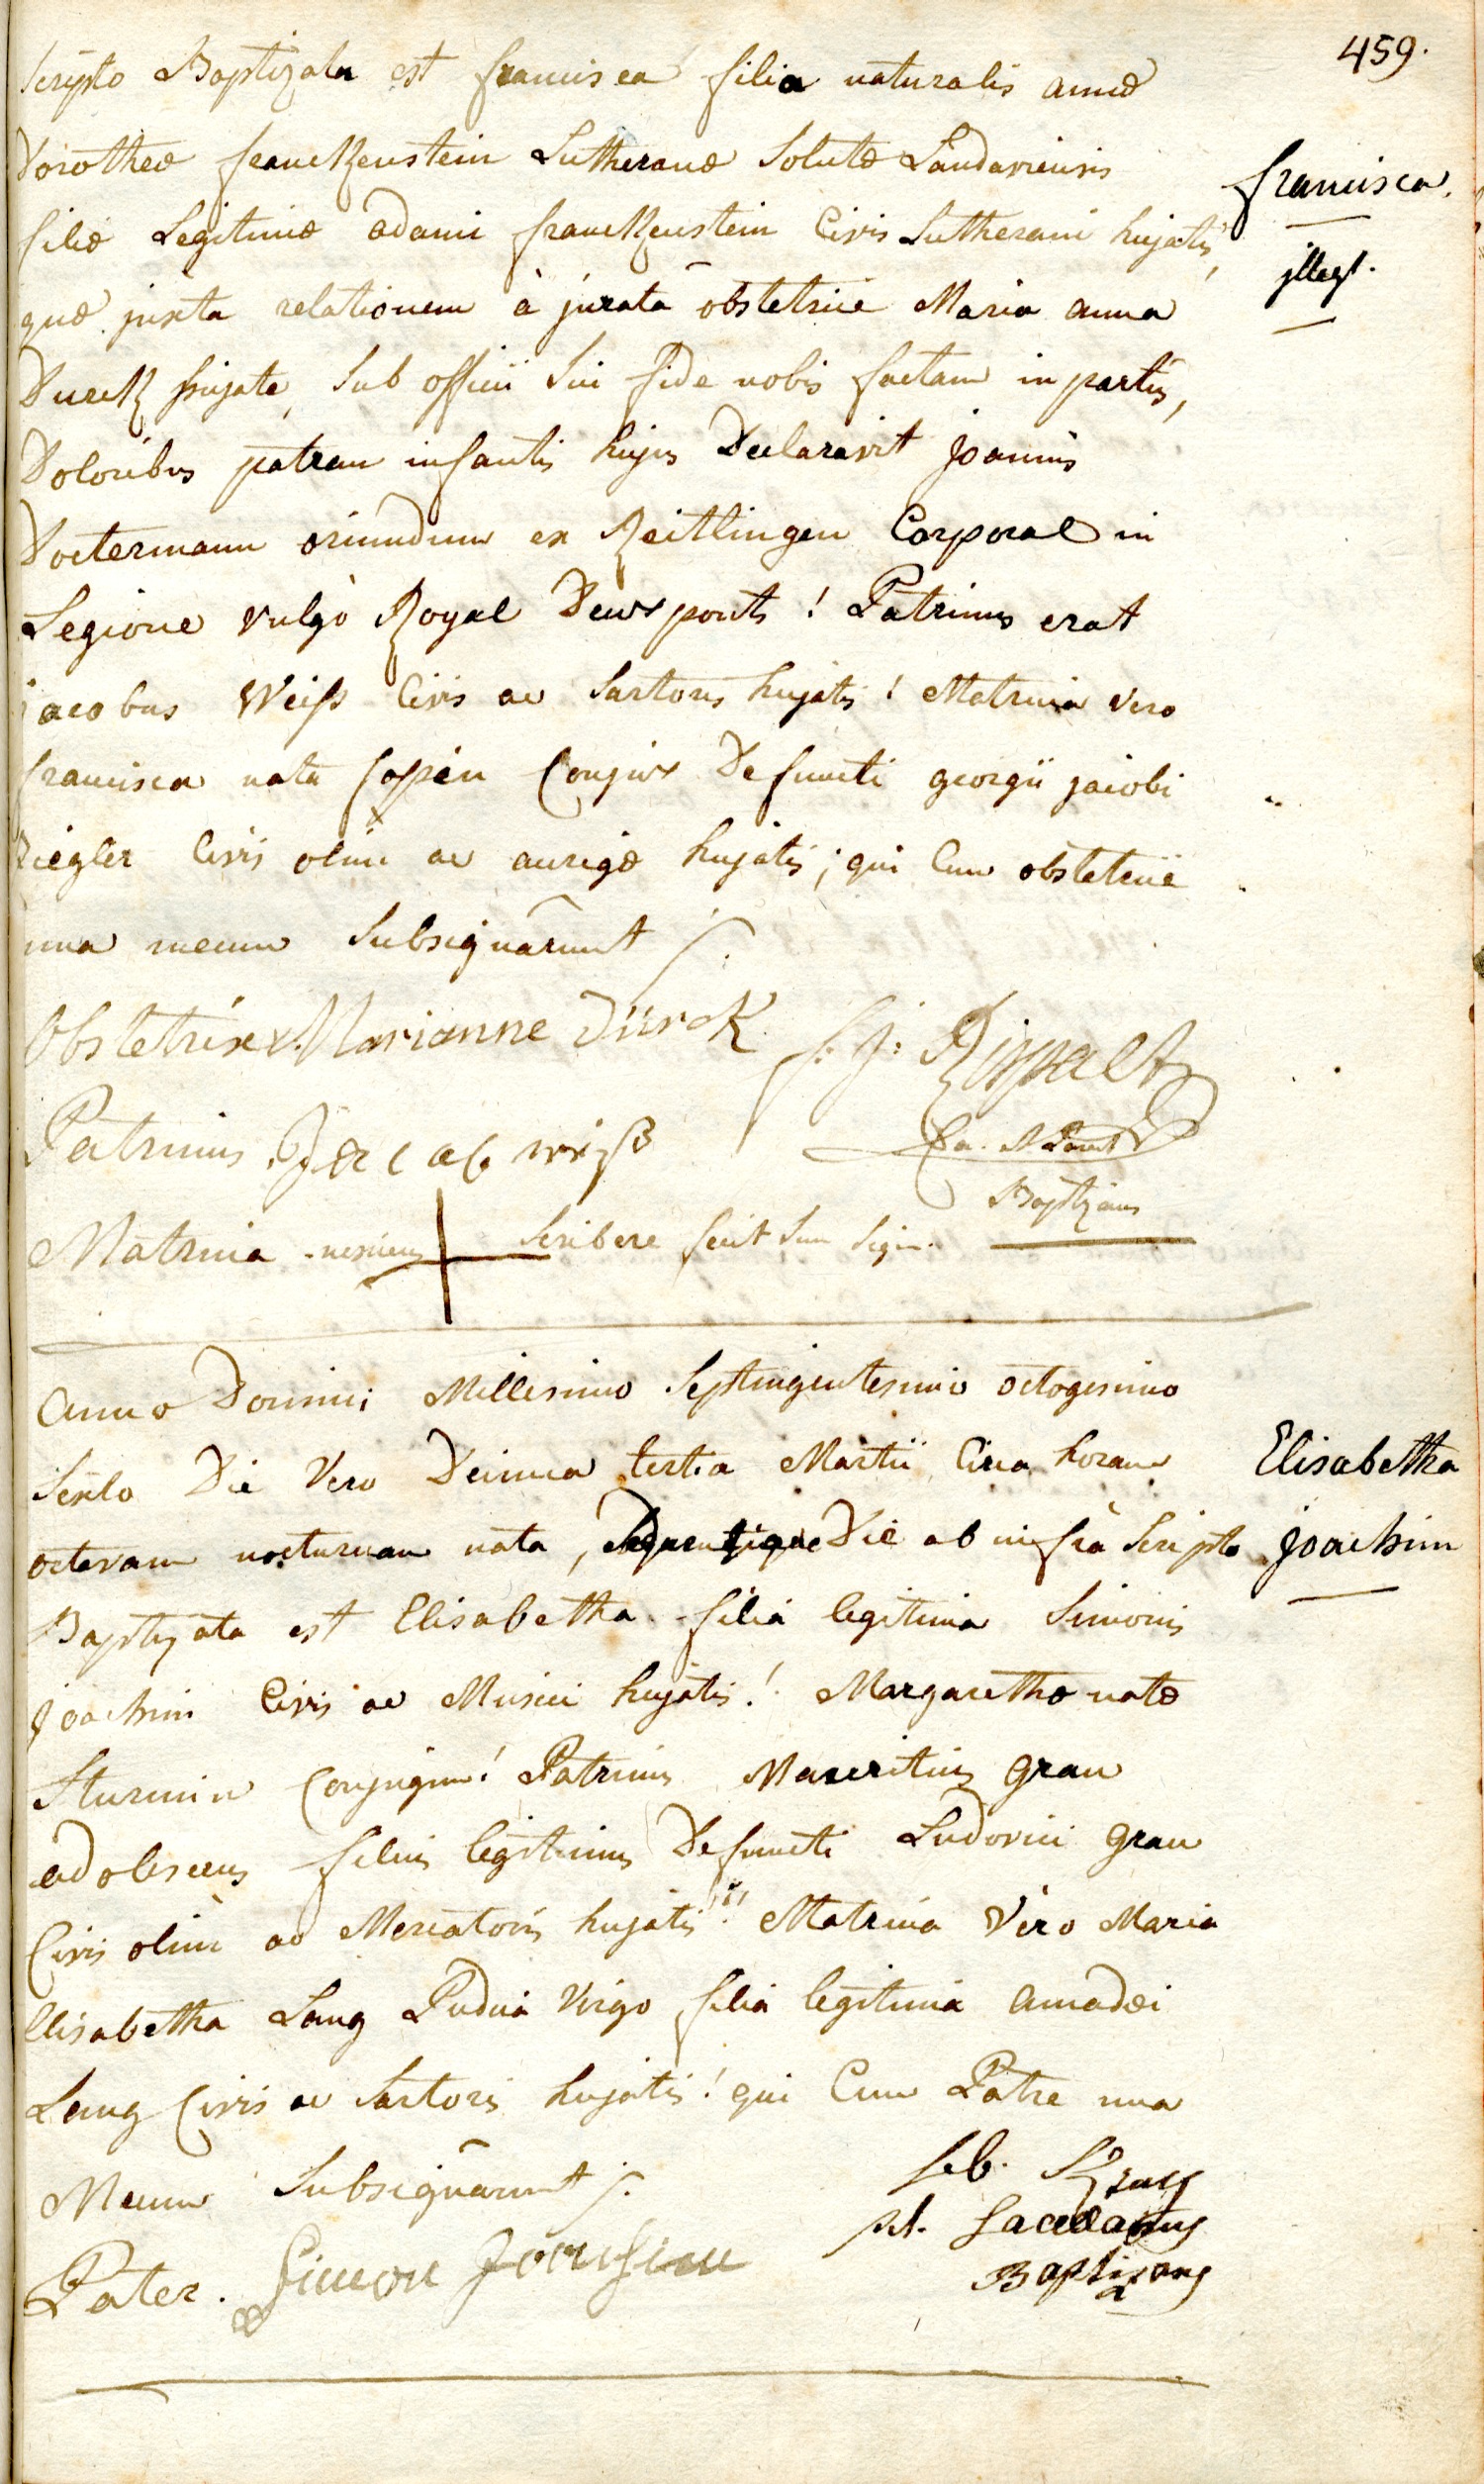 459.
scripto Baptizata est francisca filia naturalis annæ
Dorotheæ franckenstein Lutheranæ Solutæ Landaviensis
filiæ Legitimæ adami franckenstein Civis Lutherani hujatis,
quæ juxta relationem à jurata obstetrice Maria anna
Durck hujate, sub officii sui fide nobis factam in partûs,
Doloribus patrem infantis hujus Declaravit joannis
Doctermann oriundum ex Reitlingen Corporal in
Legione vulgò Royal Deuxponts! Patrinus erat
jacobus Weiss Civis ac Sartoris hujatis! Matrina vero
francisca nata Conjux Defuncti georgii jacobi
Ziegler Civis olim ac aurigæ hujatis; qui Cum obstetrice
una mecum Subsignârunt
francisca
illegt.
Obstetrix Marianne Dürck
Patrinus Jacob weiß
Baptizans
Matrina nesciens + Scribere fecit suu sign.
Anno Domini Millesimo Septingentesimo octogesimo
Sexto Die Vero Decima tertia Martii Circa horam
octavam nocturnam nata, Sequentique Die ab infrà Scripto
Baptizata est Elisabetha filia legitima Simonis
joachim Civis ac Musici hujatis! Margarethæ natæ
Sturmin Conjugum! Patrinus Mauritius grau
adolescens filius legitimus Defuncti Ludovici grau
Civis olim ac Mercatoris hujatis! Matrina Vero Maria
Elisabetha Lang Pudica Virgo filia legitima amadæi
Lang Civis ac Sartoris hujatis! qui Cum Patre una
Mecum Subsignârunt
Elisabetha
joachim
Pater. Simon Joachim
Seb.
Baptizans